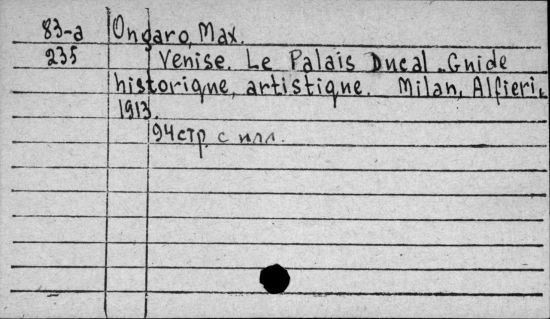 83-a Ongaro, Max.
235 Venise. Le Palais Ducal. Guide
historique, artistique. Milan, Alfieri,
1913.
94 стр. с илл.